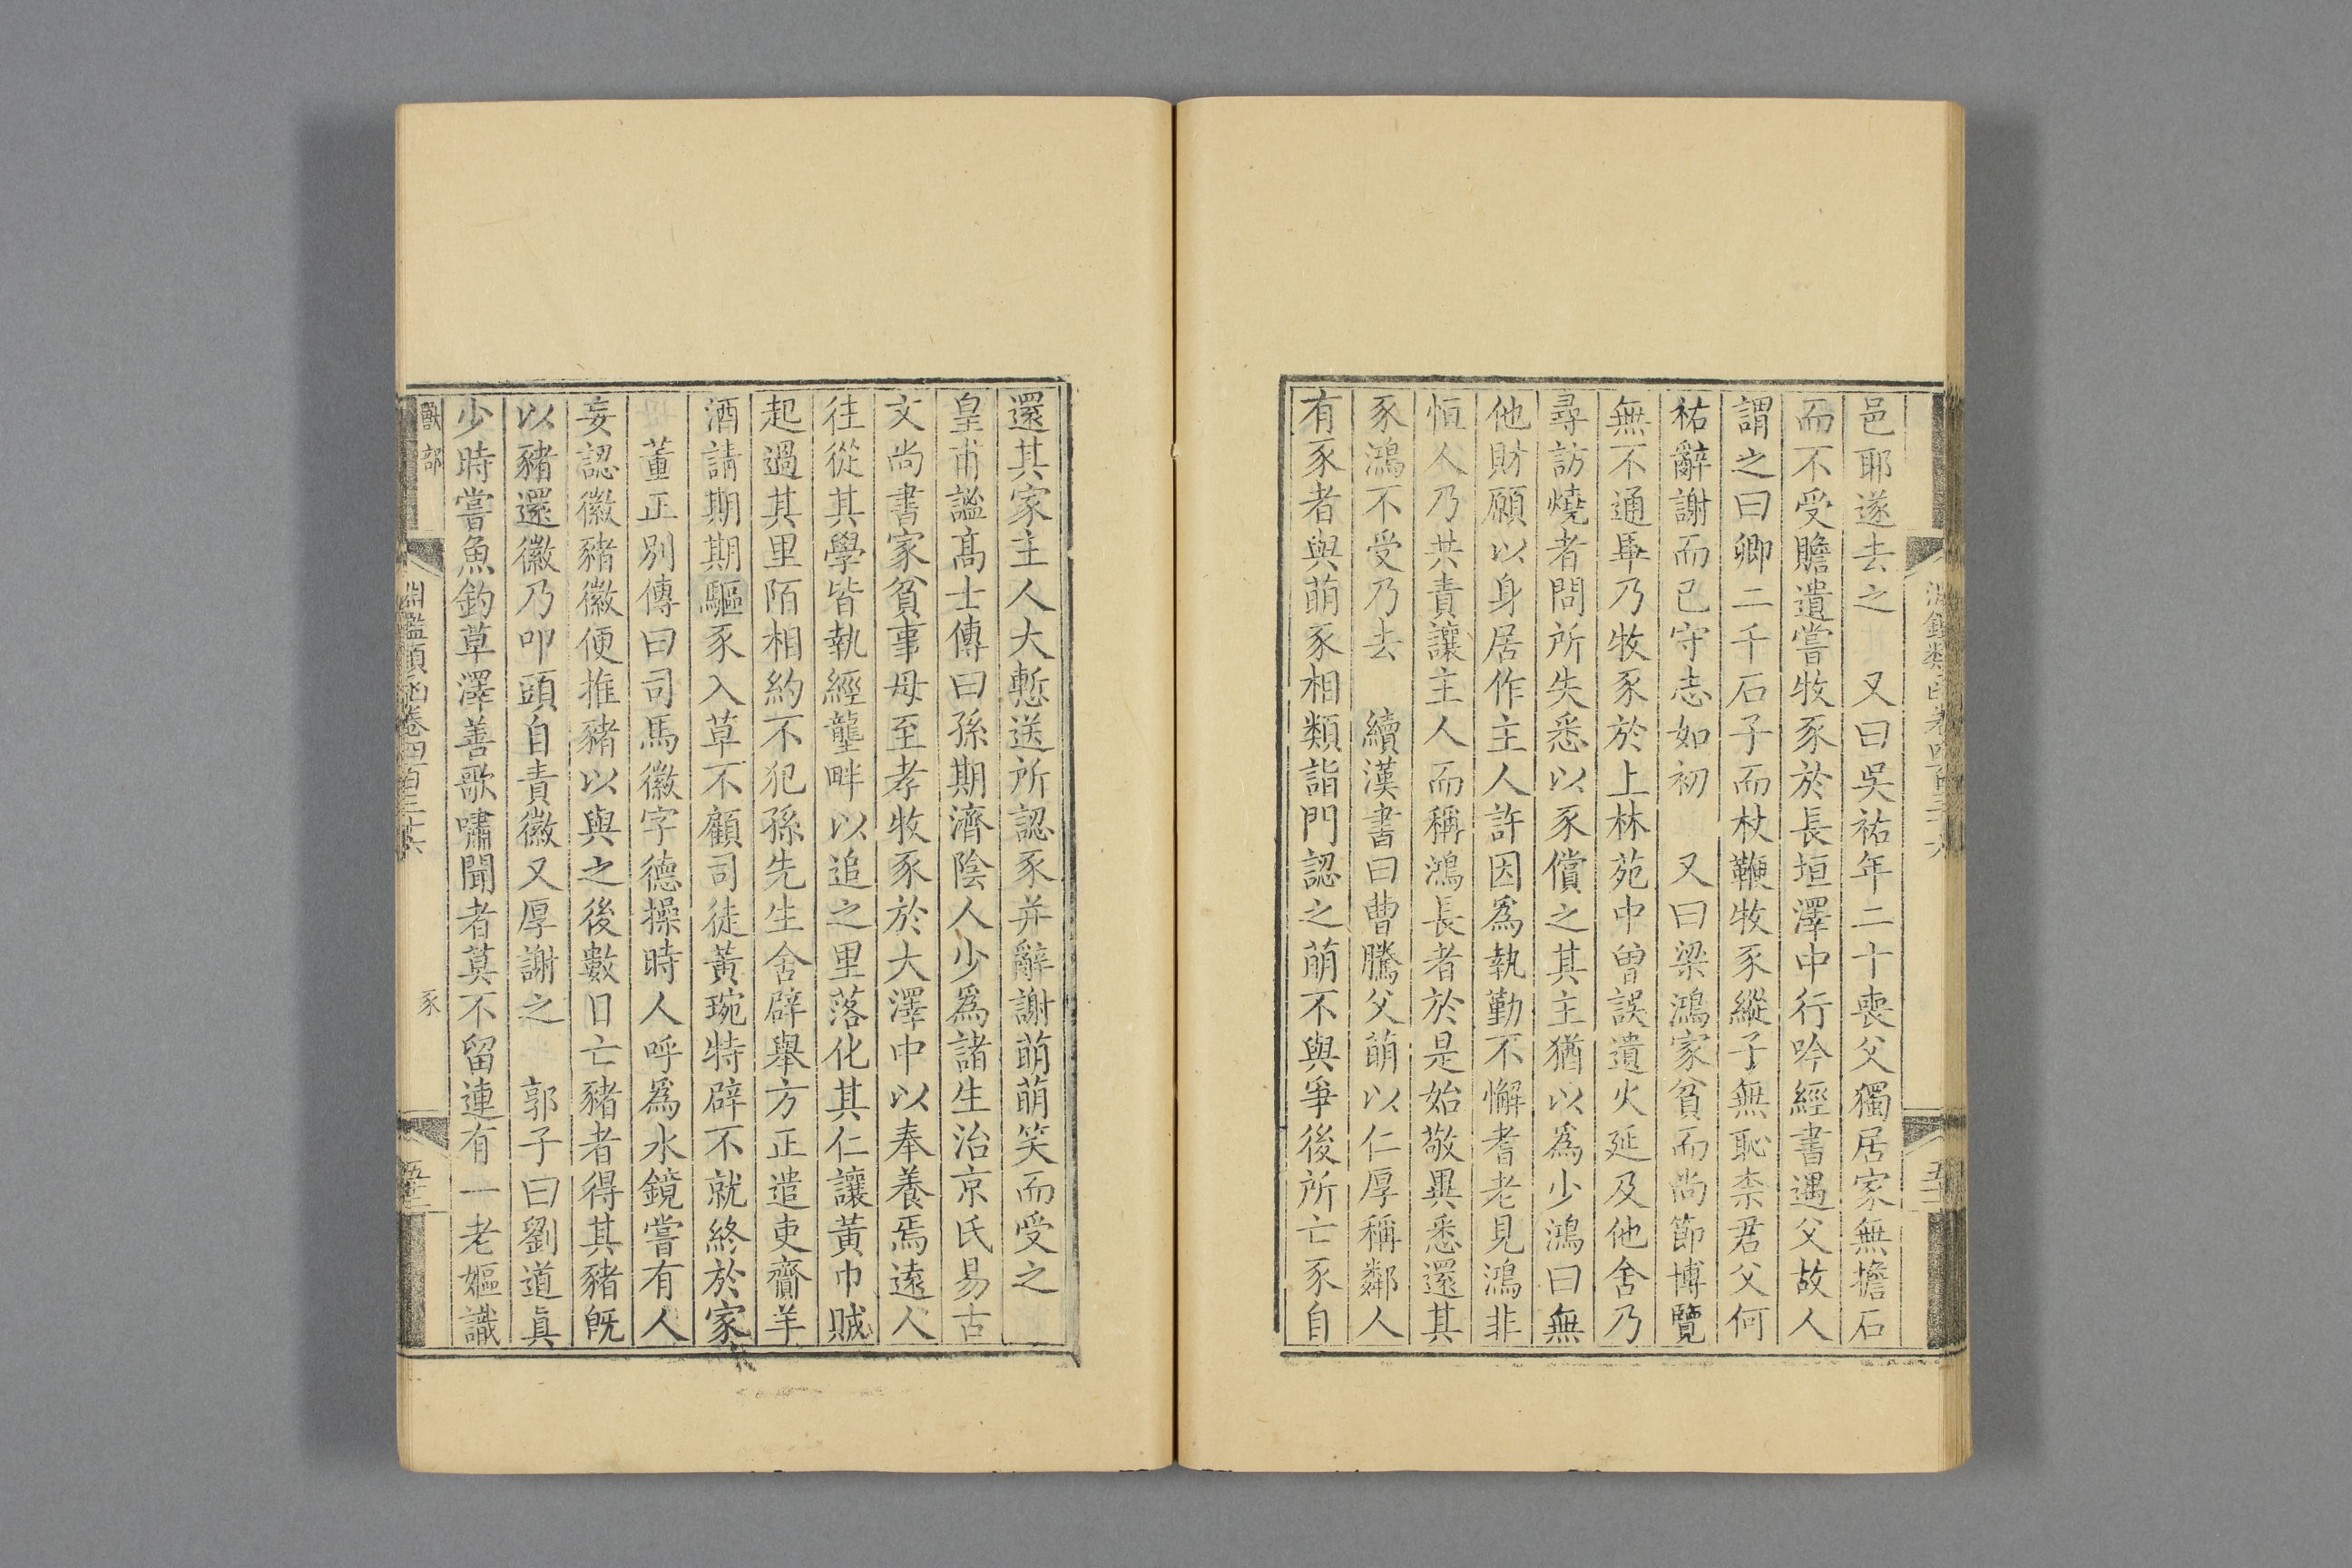 邑耶遂去之　又曰吳祐年二十喪父獨居家無擔石
而不受贍遺嘗牧豕於長垣澤中行吟經書遇父故人
謂之曰卿二千石子而杖鞭牧豕縱子無恥柰君父何
祐辭謝而已守志如初　又曰梁鴻家貧而尚節博覽
無不通畢乃牧豕於上林苑中曾誤遺火延及他舍乃
尋訪燒者問所失悉以豕償之其主猶以爲少鴻曰無
他財願以身居作主人許因爲執勤不懈耆老見鴻非
恒人乃共責讓主人而稱鴻長者於是始敬異悉還其
豕鴻不受乃去　續漢書曰曹騰父萌以仁厚稱鄰人
有豕者與萌豕相類詣門認之萌不與爭後所亡豕自
還其家主人大慙送所認豕并辭謝萌萌笑而受之
皇甫謐高士傳曰孫期濟陰人少爲諸生治京氏易古
文尚書家貧事母至孝牧豕於大澤中以奉養焉遠人
往從其學皆執經壟畔以追之里落化其仁讓黃巾賊
起過其里陌相約不犯孫先生舍辟舉方正遣吏齎羊
酒請期期驅豕入草不顧司徒黃琬特辟不就終於家
董正別傳曰司馬徽字德操時人呼爲水鏡嘗有人
妄認徽豬徽便推豬以與之後數日亡豬者得其豬旣
以豬還徽乃叩頭自責徽又厚謝之　郭子曰劉道眞
少時嘗魚釣草澤善歌嘯聞者莫不留連有一老嫗識
獸部
淵鑑類函卷四百三十六
豕